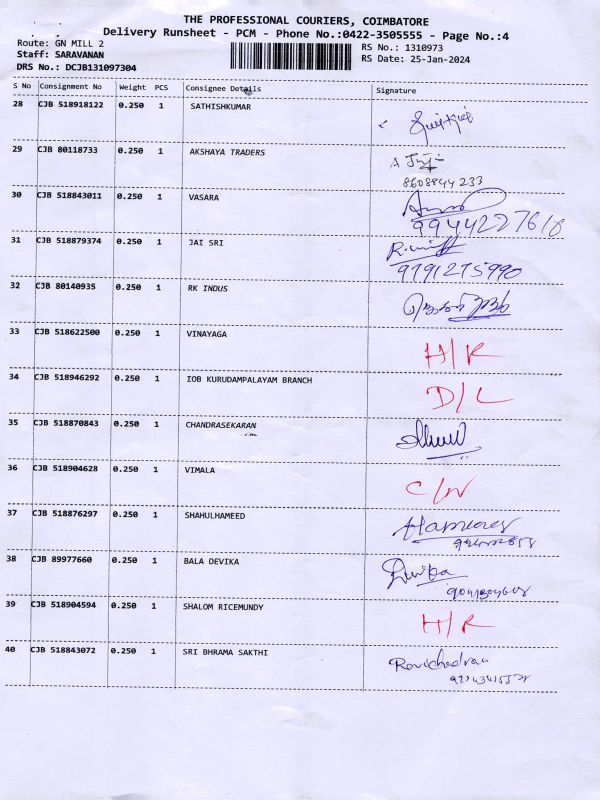 THE PROFESSIONAL COURIERS, COIMBATORE
Delivery Runsheet - PCM - Phone No.:0422-3505555 - Page No.:4
Route: GN MILL 2 RS No.: 1310973
Staff: SARAVANAN RS Date: 25-Jan-2024
DRS No.: DCJB131097304
S No Consignment No Weight PCS Consignee Details Signature
28 CJB 518918122 0.250 1 SATHISHKUMAR
29 CJB 80118733 0.250 1 AKSHAYA TRADERS
8608844233
30 CJB 518843011 0.250 1 VASARA
9944227618
31 CJB 518879374 0.250 1 JAI SRI
9791275990
32 CJB 80140935 0.250 1 RK INDUS
33 CJB 518622500 0.250 1 VINAYAGA H/R
34 CJB 518946292 0.250 1 IOB KURUDAMPALAYAM BRANCH D/L
35 CJB 518870843 0.250 1 CHANDRASEKARAN
36 CJB 518904628 0.250 1 VIMALA C/N
37 CJB 518876297 0.250 1 SHAHULHAMEED
38 CJB 89977660 0.250 1 BALA DEVIKA Devika
39 CJB 518904594 0.250 1 SHALOM RICEMUNDY H/R
40 CJB 518843072 0.250 1 SRI BHRAMA SAKTHI Ravichadran